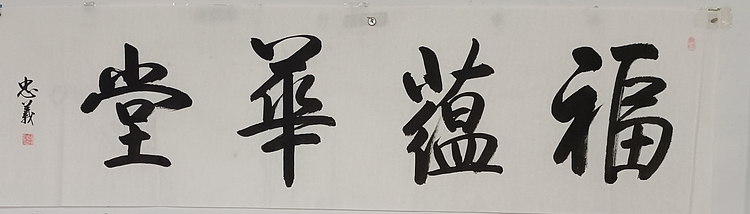 福蘊華堂
忠義